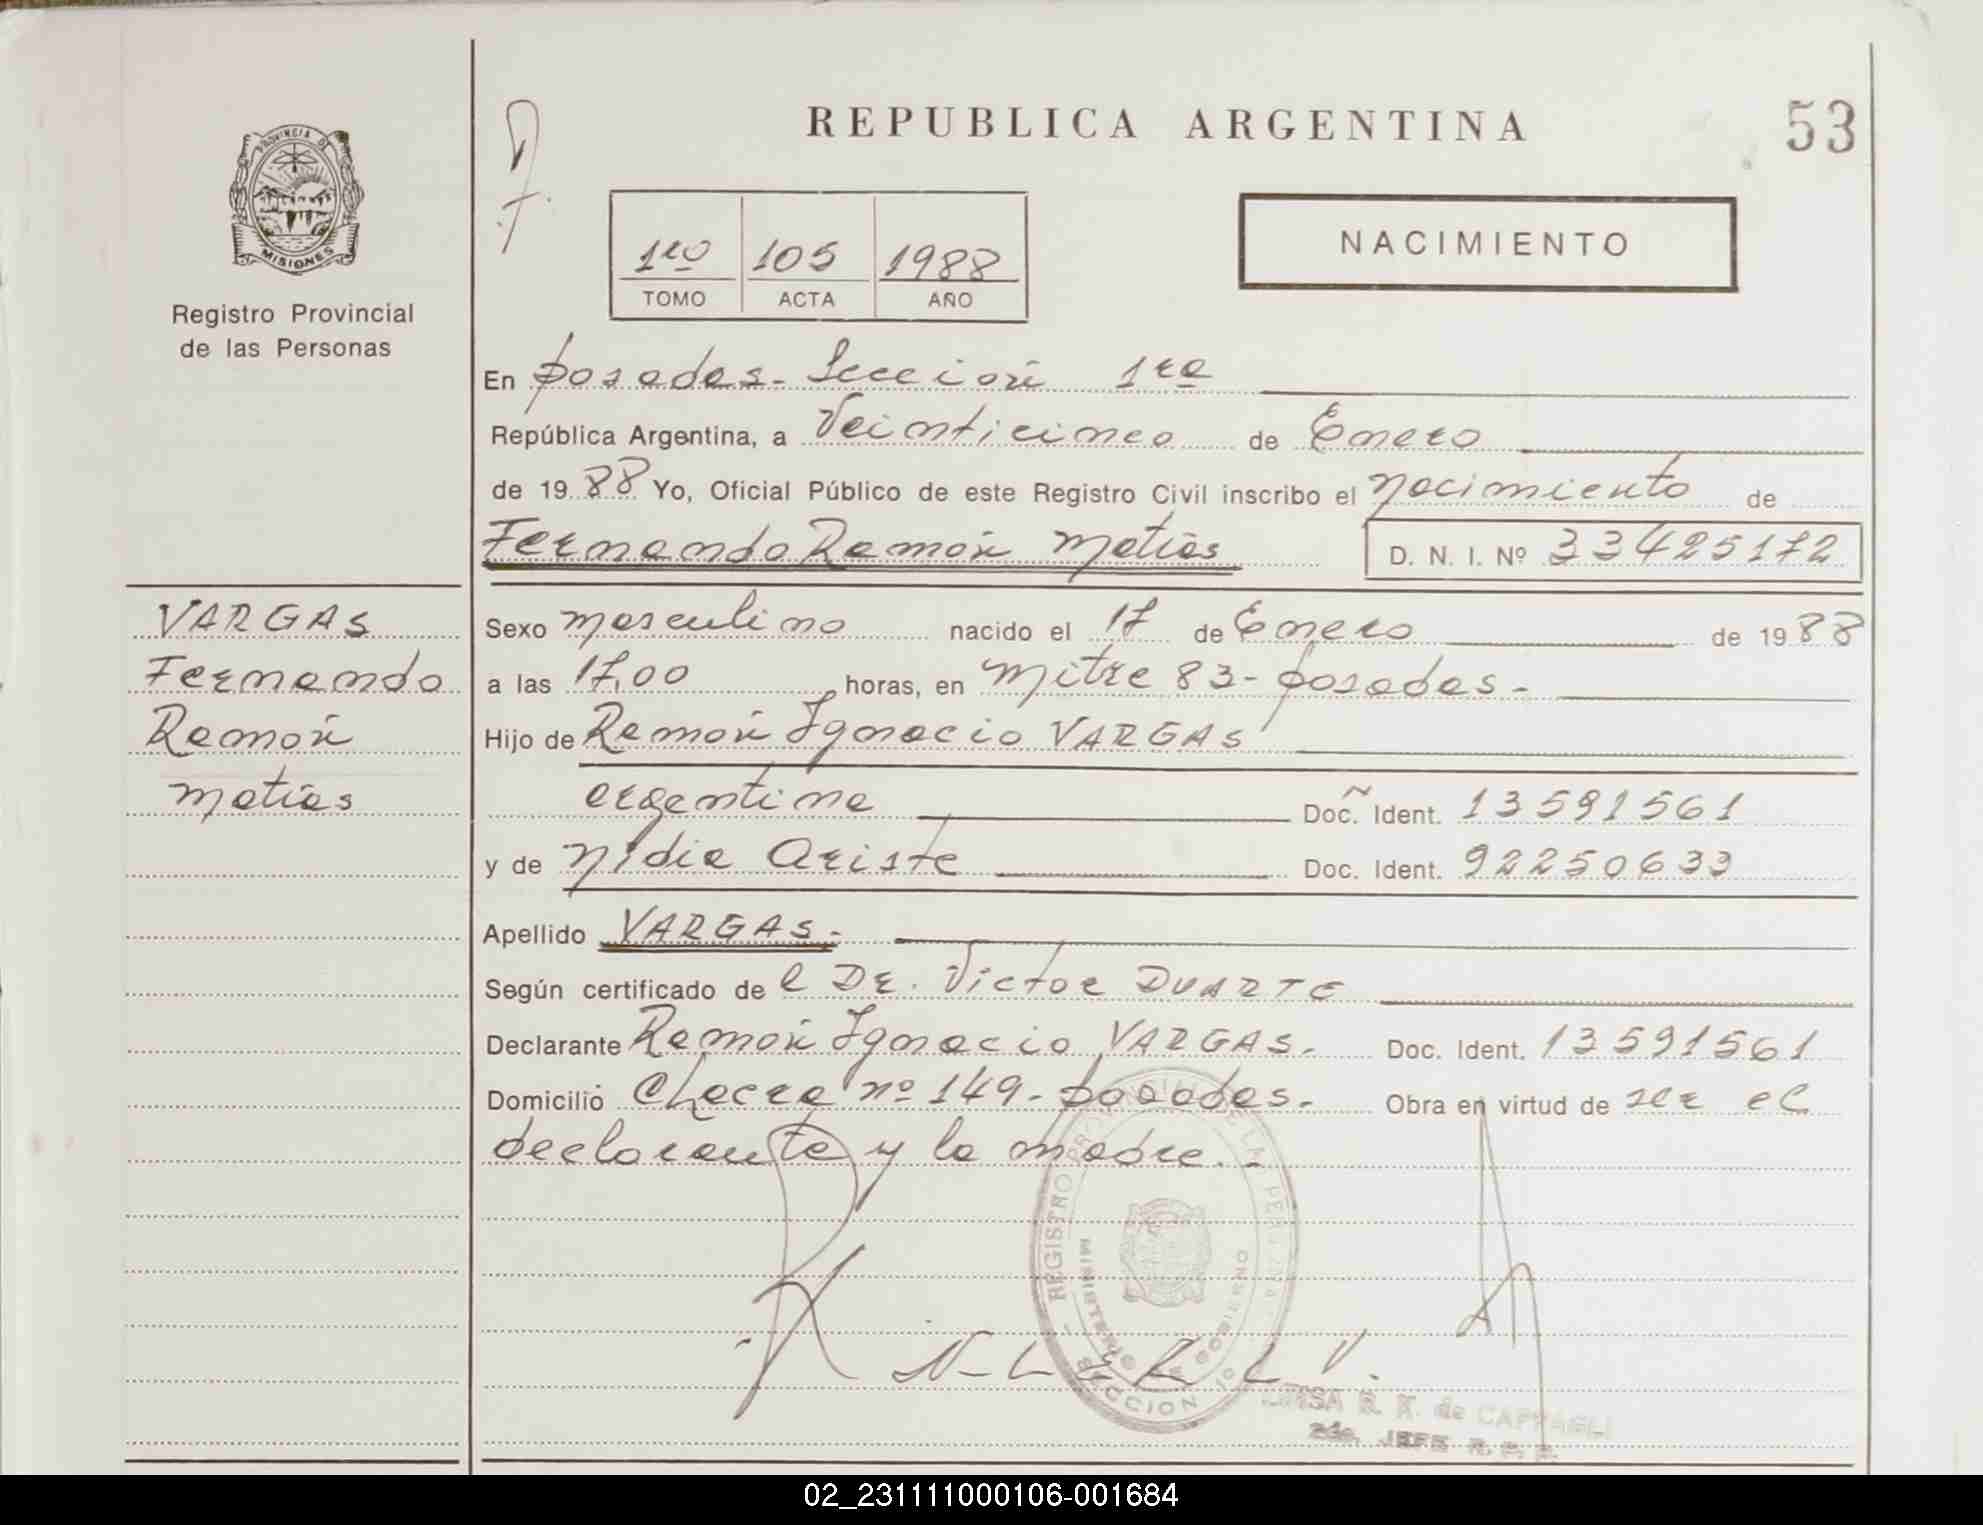 PROVINCIA DE
MISIONES
Registro Provincial
de las Personas
REPUBLICA ARGENTINA
53
1ro 105 1988
TOMO ACTA AÑO
NACIMIENTO
En Posadas - Sección 1ra
República Argentina, a Veinticinco de Enero
de 1988 Yo, Oficial Público de este Registro Civil inscribo el nacimiento de
Fernando Ramón Matías D. N. I. Nº 33425172
VARGAS
Fernando
Ramón
Matías
Sexo masculino nacido el 17 de Enero de 1988
a las 17,00 horas, en Mitre 83 - Posadas -
Hijo de Ramón Ignacio VARGAS
argentina Doc. Ident. 13591561
y de Nidia Ariste Doc. Ident. 92250633
Apellido VARGAS -
Según certificado de l DR. Victor DUARTE
Declarante Ramón Ignacio VARGAS - Doc. Ident. 13591561
Domicilio Chacra nº 149 - Posadas - Obra en virtud de ser el
declarante y la madre. -
REGISTRO PROVINCIAL DE LAS PERSONAS
MINISTERIO DE GOBIERNO
SECCION 1a
LUISA R. K. de
2do. JEFE R. P. P.
02_231111000106-001684